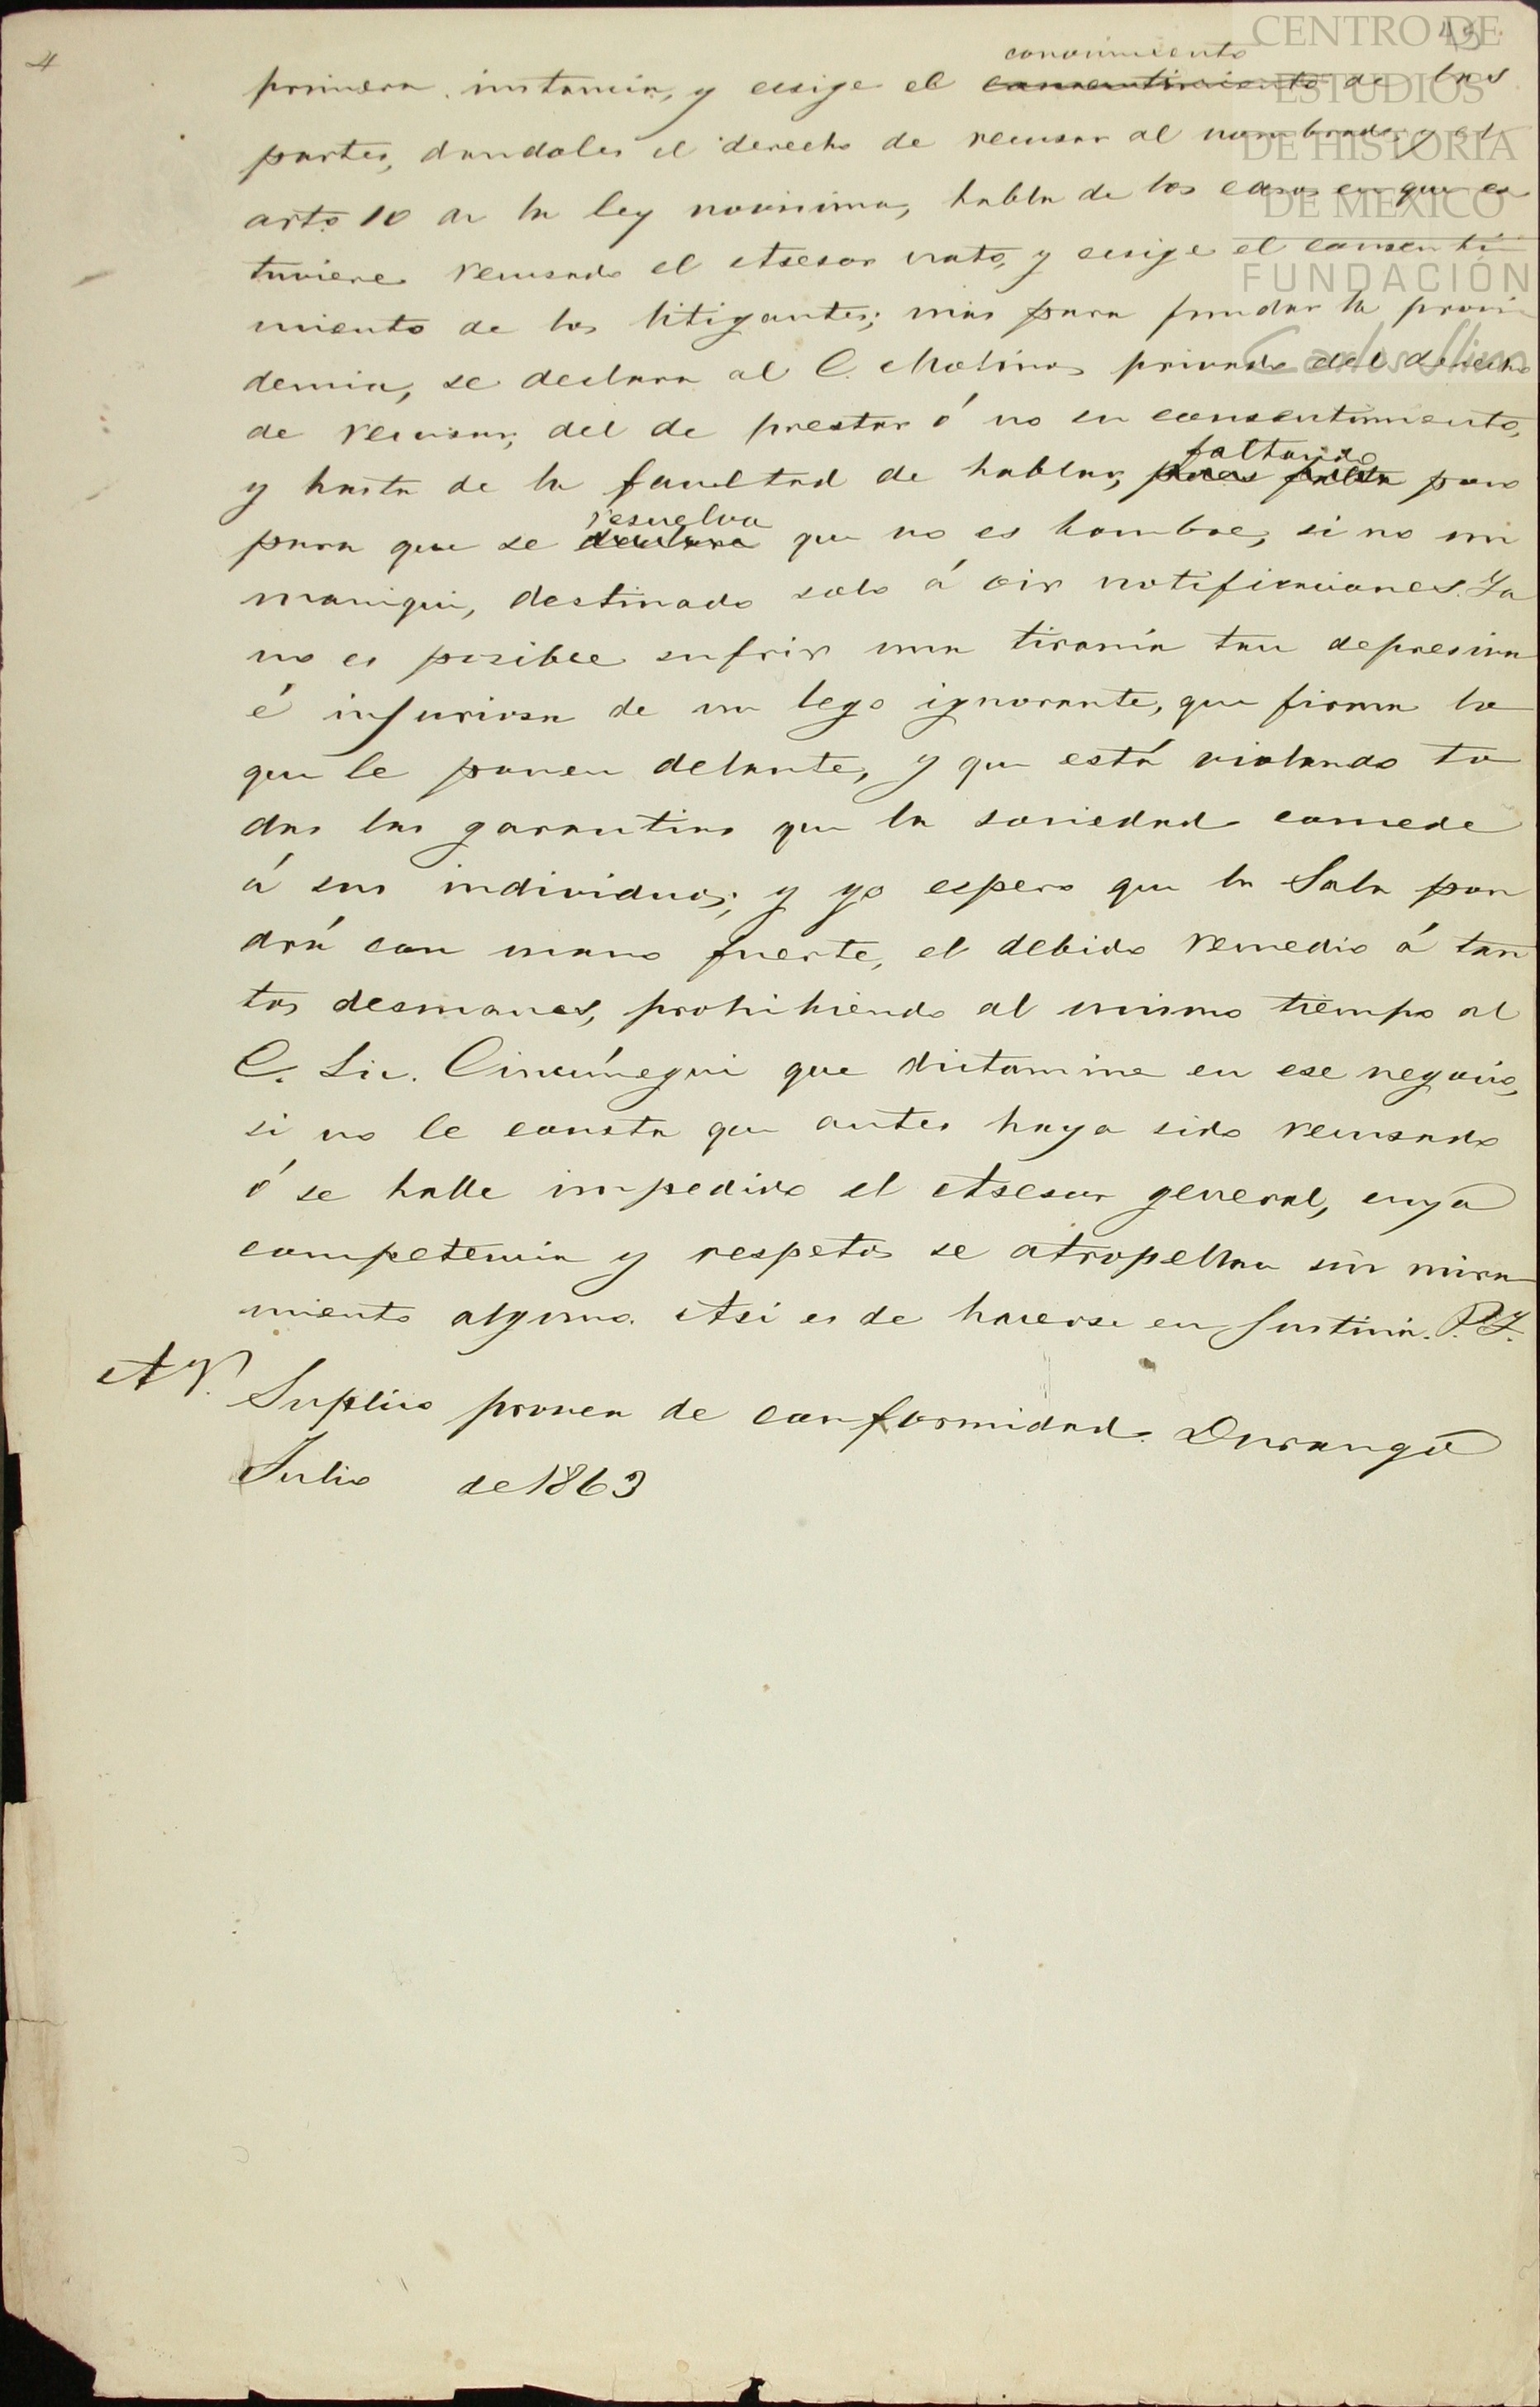 4
CENTRO DE
ESTUDIOS
DE HISTORIA
DE MEXICO
FUNDACIÓN
Carlos Slim
conocimiento
primera instancia, y ecsige el consentimiento de las
partes, dandoles el derecho de recusar al nombrado; y el
arto 10 de la ley novisima, habla de los casos en que es
tuviere recusado el Asesor nato, y ecsige el consenti
miento de los litigantes; mas para fundar la provi
dencia, se declara al C. Molina privado del derecho
de recusar, del de prestar ó no su consentimiento,
faltando
y hasta de la facultad de hablar, pues falta poco
resuelva
para que se declare que no es hombre, si no un
maniqui, destinado solo á oir notificaciones. Ya
no es posible sufrir una tirania tan depresiva
é injuriosa de un lego ignorante, que firma lo
que le ponen delante, y que está violando to
das las garantias que la sociedad concede
á sus individuos; y yo espero que la Sala pon
drá con mano fuerte, el debido remedio á tan
tos desmanes, prohibiendo al mismo tiempo al
C. Lic. Cincúnegui que dictamine en ese negocio,
si no le consta que antes haya sido recusado
ó se halle impedido el Asesor general, cuya
competencia y respetos se atropellan sin mira
miento alguno. Asi es de hacerse en Justicia. P. Y.
A V. Suplico provea de conformidad. Durango
Julio de 1863